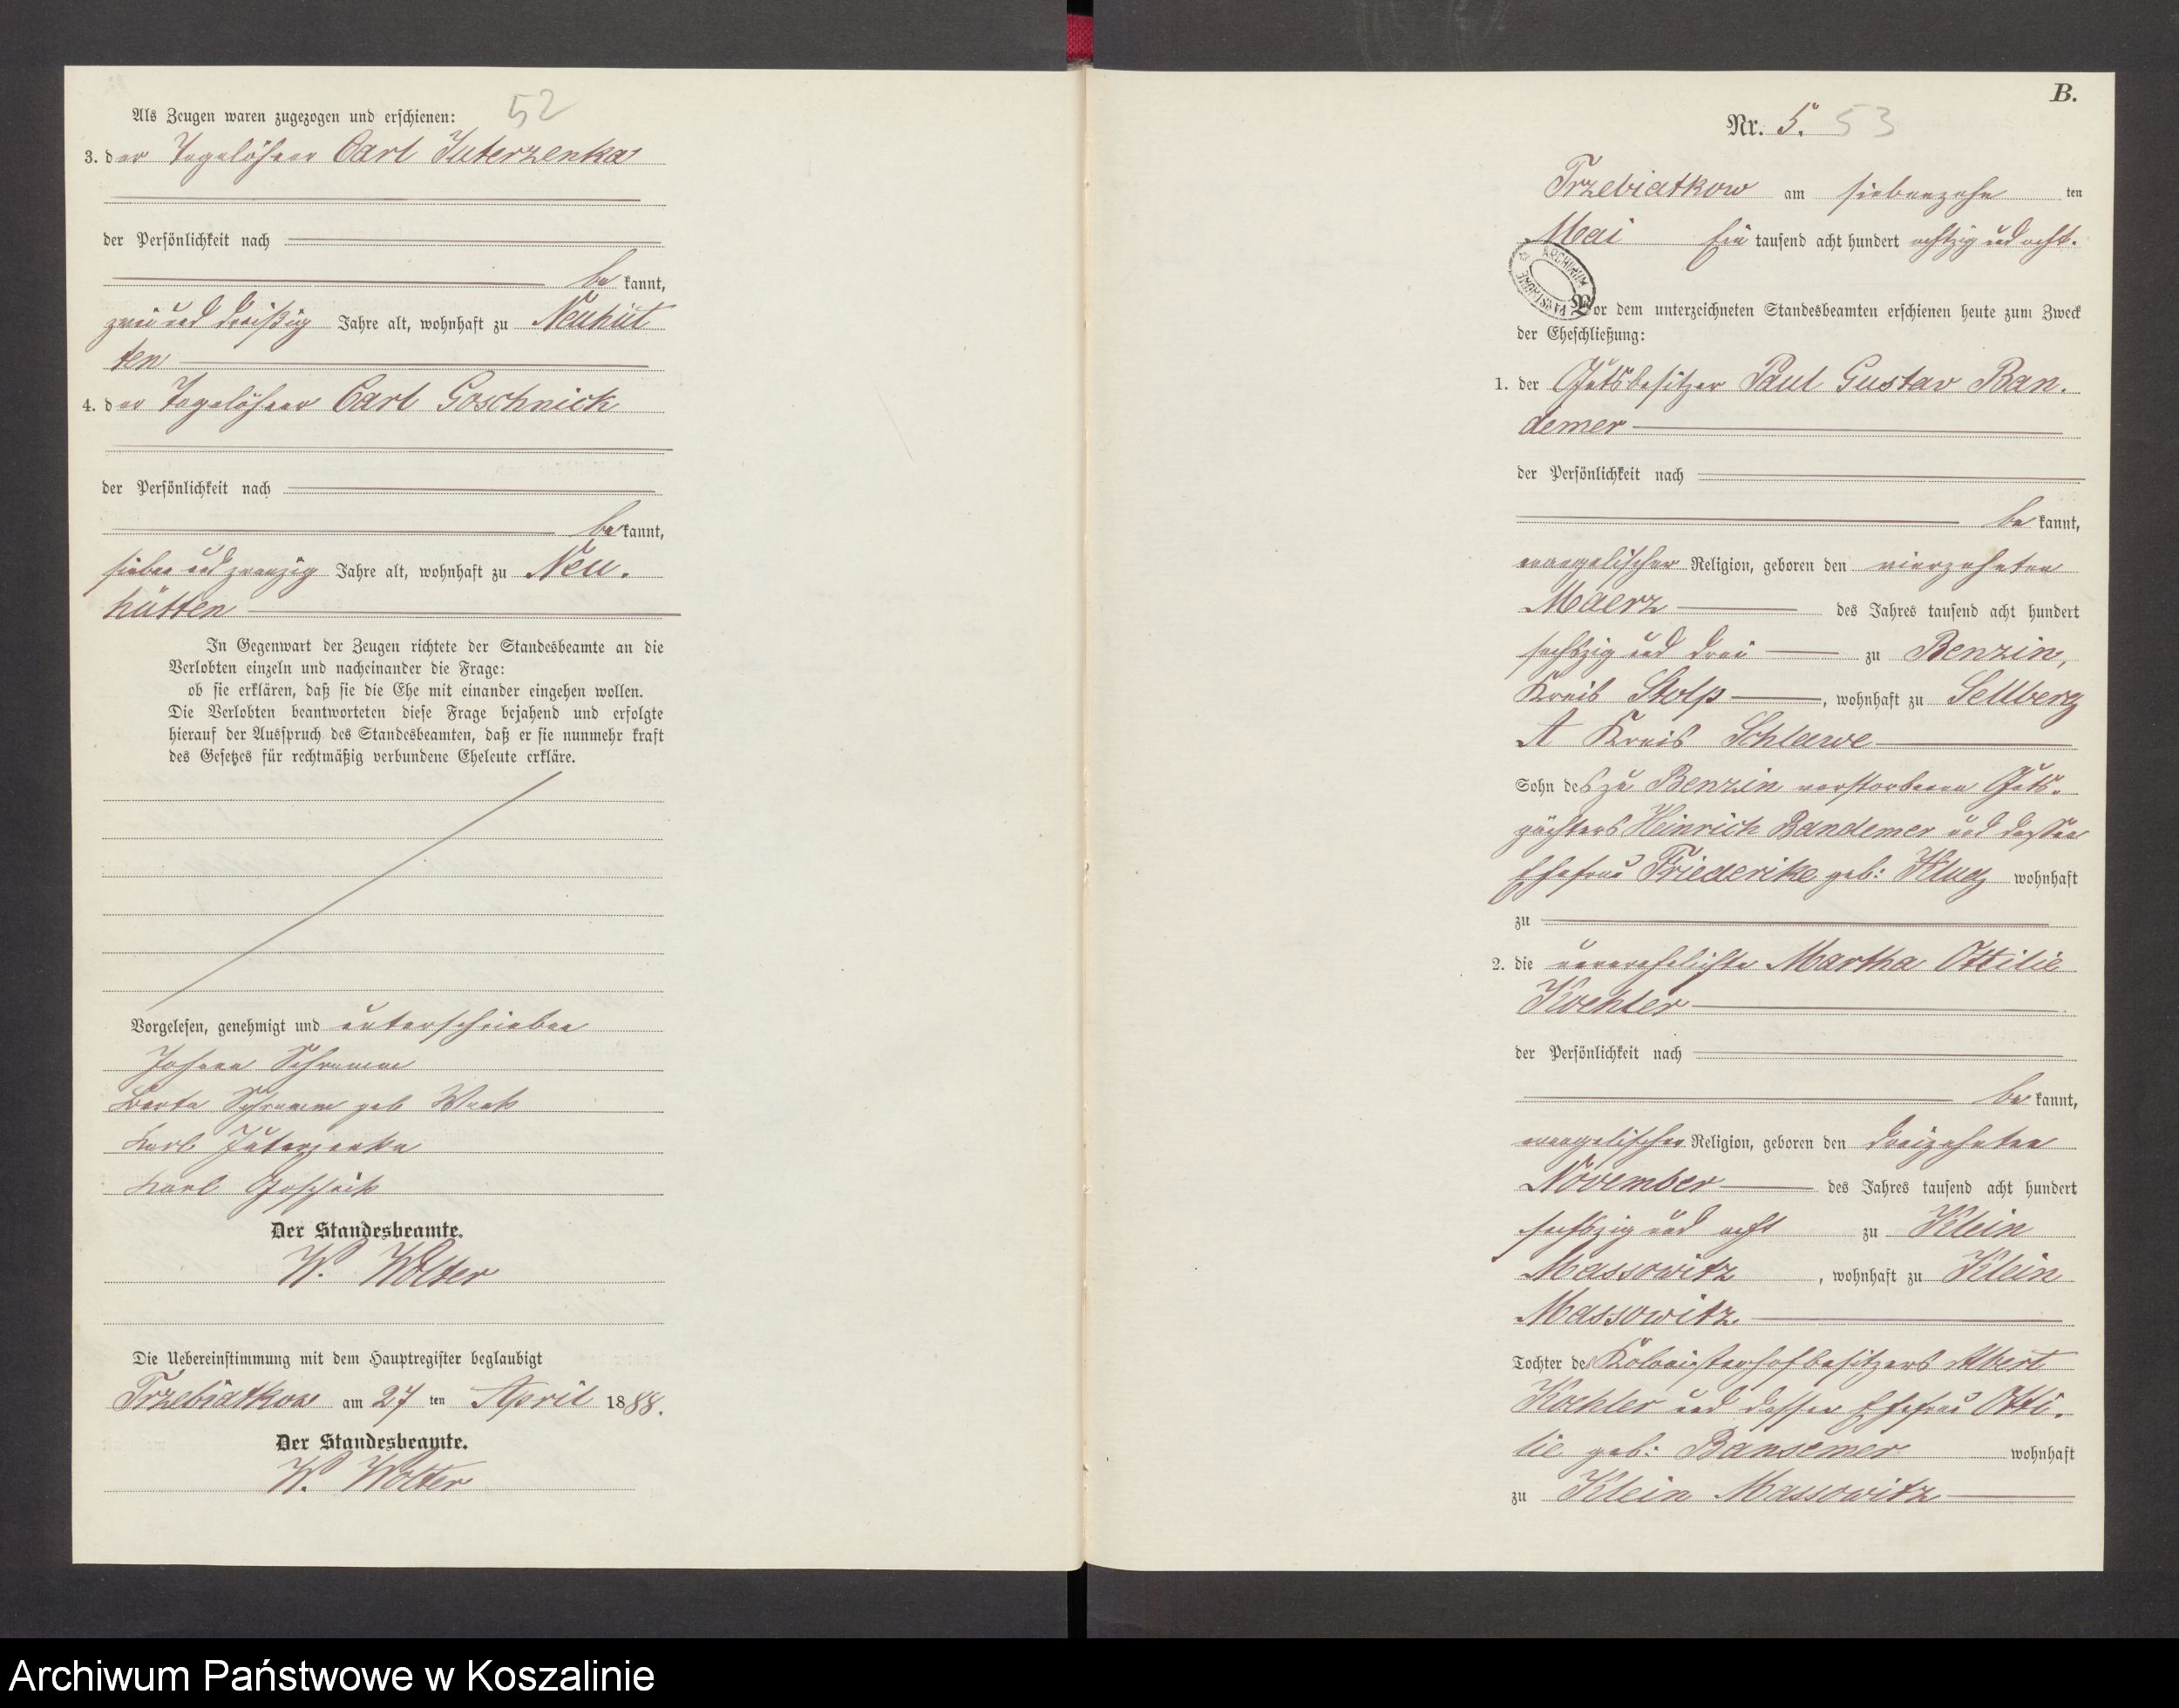 52
Als Zeugen waren zugezogen und erschienen:
3. der Tagelöhner Carl Juterzenka
der Persönlichkeit nach
bekannt,
zwei und dreißig Jahre alt, wohnhaft zu Neuhüt
ten
4. der Tagelöhner Carl Goschnick
der Persönlichkeit nach
bekannt,
sieben und zwanzig Jahre alt, wohnhaft zu Neu.
hütten
In Gegenwart der Zeugen richtete der Standesbeamte an die
Verlobten einzeln und nacheinander die Frage:
ob sie erklären, daß sie die Ehe mit einander eingehen wollen.
Die Verlobten beantworteten diese Frage bejahend und erfolgte
hierauf der Ausspruch des Standesbeamten, daß er sie nunmehr kraft
des Gesetzes für rechtmäßig verbundene Eheleute erkläre.
Vorgelesen, genehmigt und unterschrieben
Johann Schramm
Berta Schramm geb
Karl Juterzenka
Karl Goschnik
Der Standesbeamte.
W. Wolter
Die Uebereinstimmung mit dem Hauptregister beglaubigt
Trzebiatkow am 27 ten April 1888.
Der Standesbeamte.
W. Wolter
B.
Nr. 5. 53
Trzebiatkow am siebenzehn ten
Mai Ein tausend acht hundert achtzig und acht.
ARCHIWUM PAŃSTWOWE
Vor dem unterzeichneten Standesbeamten erschienen heute zum Zweck
der Eheschließung:
1. der Gutsbesitzer Paul Gustav Ban.
demer
der Persönlichkeit nach
bekannt,
evangelischer Religion, geboren den vierzehnten
Maerz des Jahres tausend acht hundert
sechszig und drei zu Benzin,
Kreis Stolp, wohnhaft zu Sellberg
A Kreis Schlawe
Sohn des zu Benzin verstorbenen Guts.
pächters Heinrich Bandemer und dessen
Ehefrau Friederike geb: Klug wohnhaft
zu
2. die unverehelichte Martha Ottilie
Koehler
der Persönlichkeit nach
bekannt,
evangelischer Religion, geboren den dreizehnten
November des Jahres tausend acht hundert
sechszig und acht zu Klein
Massowitz, wohnhaft zu Klein
Massowitz.
Tochter des Kolonistenhofbesitzers Albert
Koehler und dessen Ehefrau Otti.
lie geb: Bansemer wohnhaft
zu Klein Massowitz
Archiwum Państwowe w Koszalinie